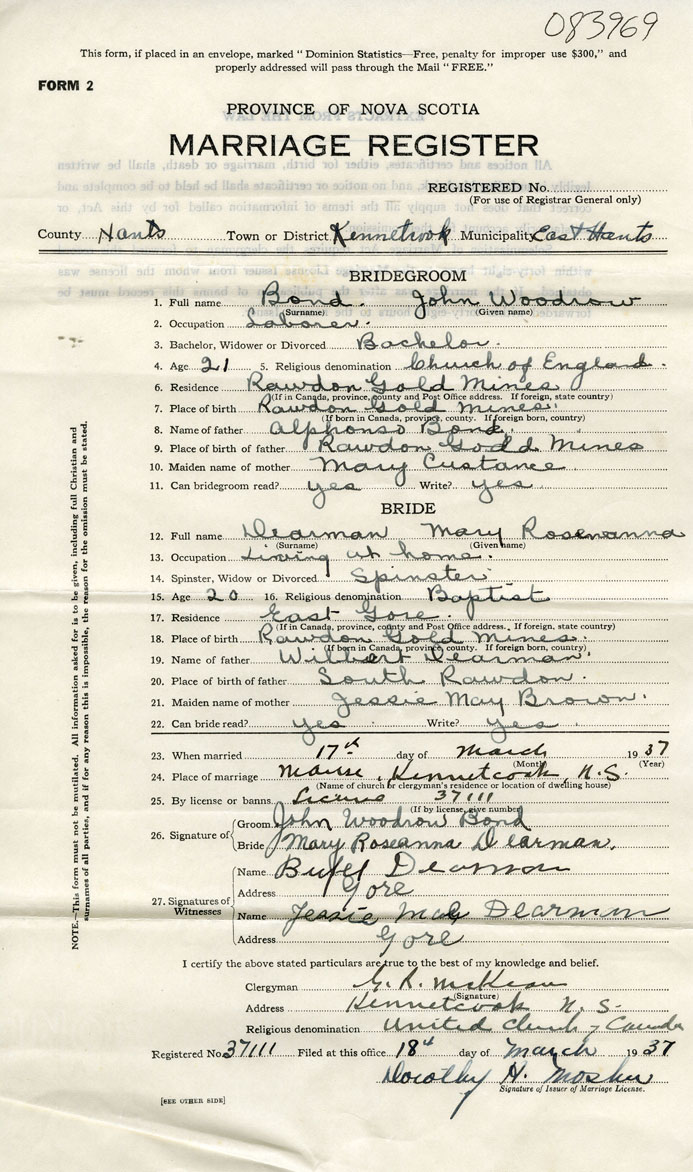 083969
This form, if placed in an envelope, marked "Dominion Statistics—Free, penalty for improper use $300," and
properly addressed will pass through the Mail "FREE."
FORM 2
PROVINCE OF NOVA SCOTIA
MARRIAGE REGISTER
REGISTERED No.
(For use of Registrar General only)
County Hants Town or District Kennetcook Municipality East Hants
BRIDEGROOM
1. Full name Bond. John Woodrow
(Surname) (Given name)
2. Occupation Laborer.
3. Bachelor, Widower or Divorced Bachelor.
4. Age 21 5. Religious denomination Church of England.
6. Residence Rawdon Gold Mines
(If in Canada, province, county and Post Office address. If foreign, state country)
7. Place of birth Rawdon Gold Mines.
(If born in Canada, province, county. If foreign born, country)
8. Name of father Alphonso Bond.
9. Place of birth of father Rawdon Gold Mines
10. Maiden name of mother Mary Custance.
11. Can bridegroom read? yes Write? yes.
BRIDE
12. Full name Dearman Mary Rosewanna
(Surname) (Given name)
13. Occupation Living at home.
14. Spinster, Widow or Divorced Spinster.
15. Age 20 16. Religious denomination Baptist
17. Residence East Gore.
(If in Canada, province, county and Post Office address. If foreign, state country)
18. Place of birth Rawdon Gold Mines.
(If born in Canada, province, county. If foreign born, country)
19. Name of father Wilbert Dearman.
20. Place of birth of father South Rawdon.
21. Maiden name of mother Jessie May Brown.
22. Can bride read? yes Write? yes
23. When married 17th day of March 1937
(Month) (Year)
24. Place of marriage Manse, Kennetcook, N.S.
(Name of church or clergyman's residence or location of dwelling house)
25. By license or banns License 37111
(If by license, give number)
26. Signature of Groom John Woodrow Bond
Bride Mary Roseanna Dearman.
27. Signatures of Witnesses
Name Dearman
Address Gore
Name Jessie May Dearman
Address Gore
I certify the above stated particulars are true to the best of my knowledge and belief.
Clergyman G. R. McKean
(Signature)
Address Kennetcook N.S.
Religious denomination United Church of Canada
Registered No. 37111 Filed at this office 18th day of March 1937
Dorothy H. Mosher
Signature of Issuer of Marriage License.
[SEE OTHER SIDE]
NOTE.—This form must not be mutilated. All information asked for is to be given, including full Christian and
surnames of all parties, and if for any reason this is impossible, the reason for the omission must be stated.